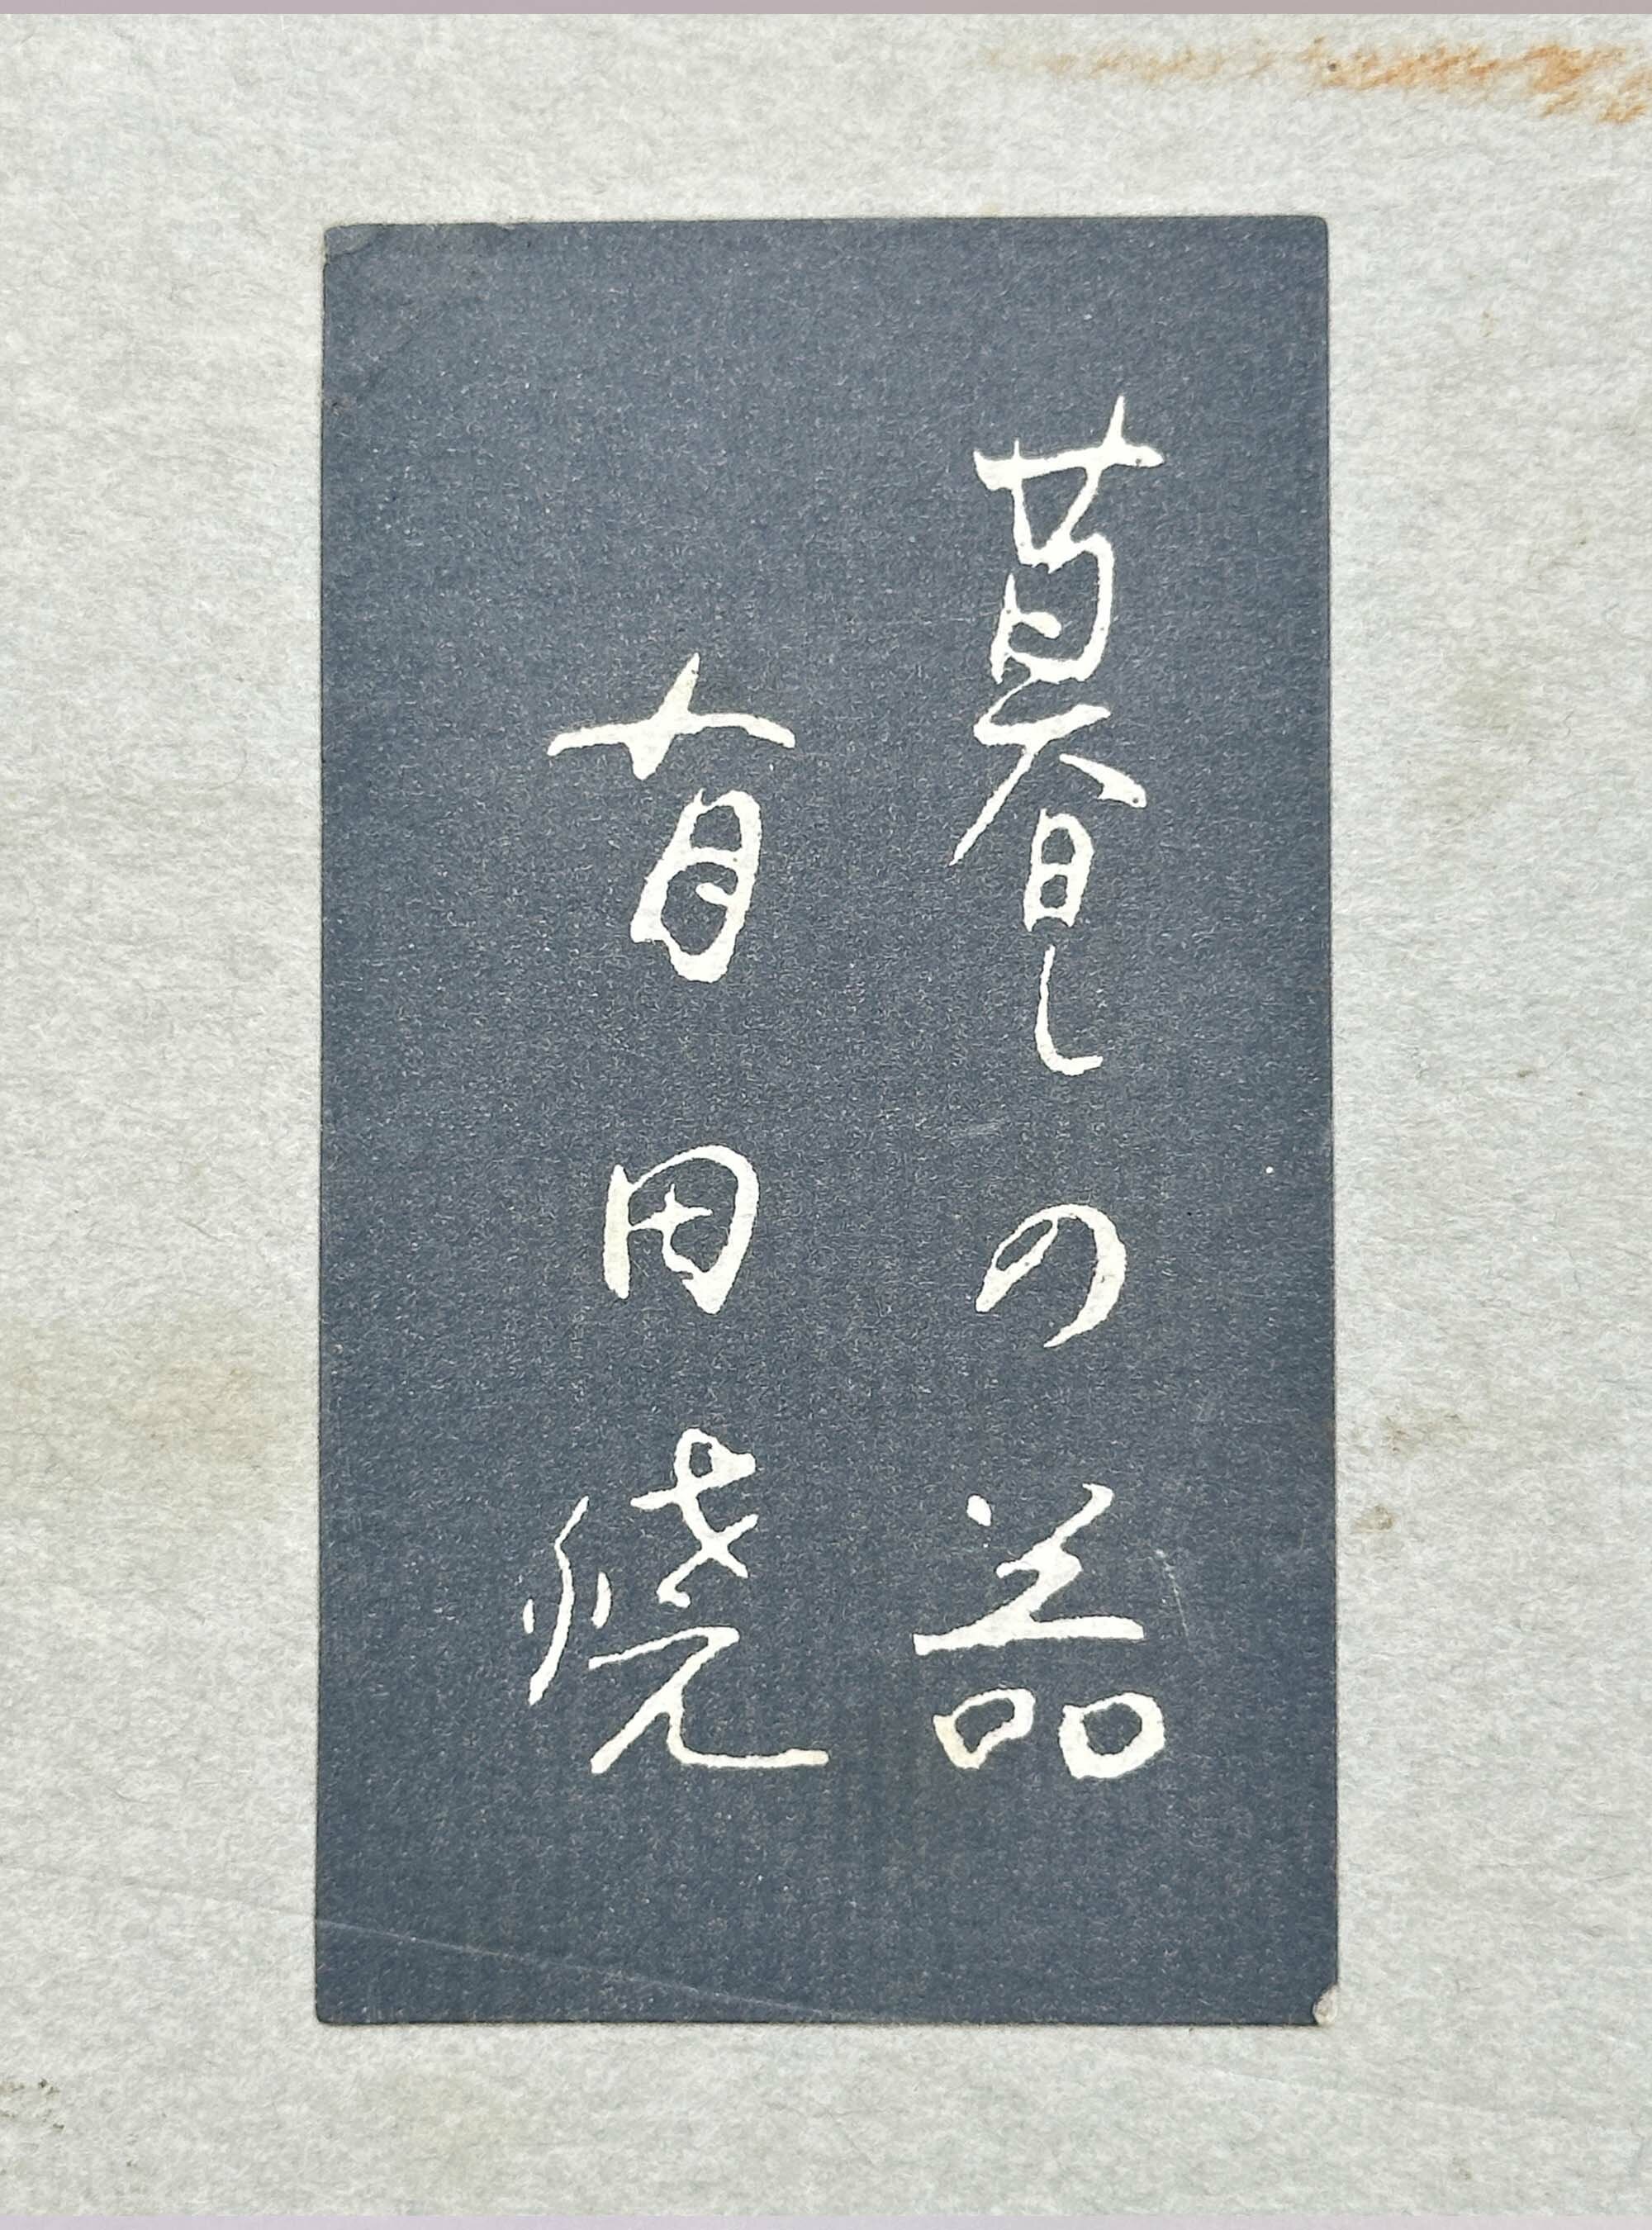 暮しの器
有田焼